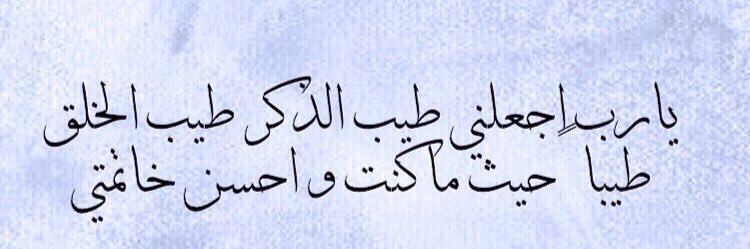 يارب إجعلني طيب الذكر طيب الخلق
طيبا حيث ما كنت و احسن خاتمتي